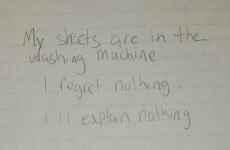 My sheets are in the
washing machine.
I regret nothing.
I'll explain nothing